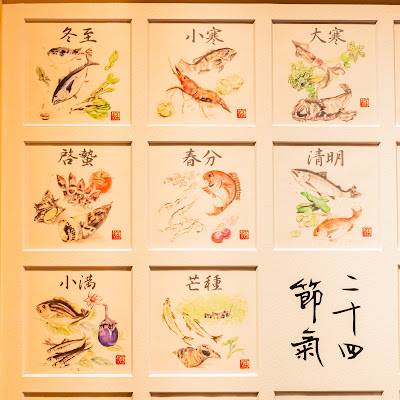 冬至
小寒
大寒
啓蟄
春分
清明
小満
芒種
二十四
節氣